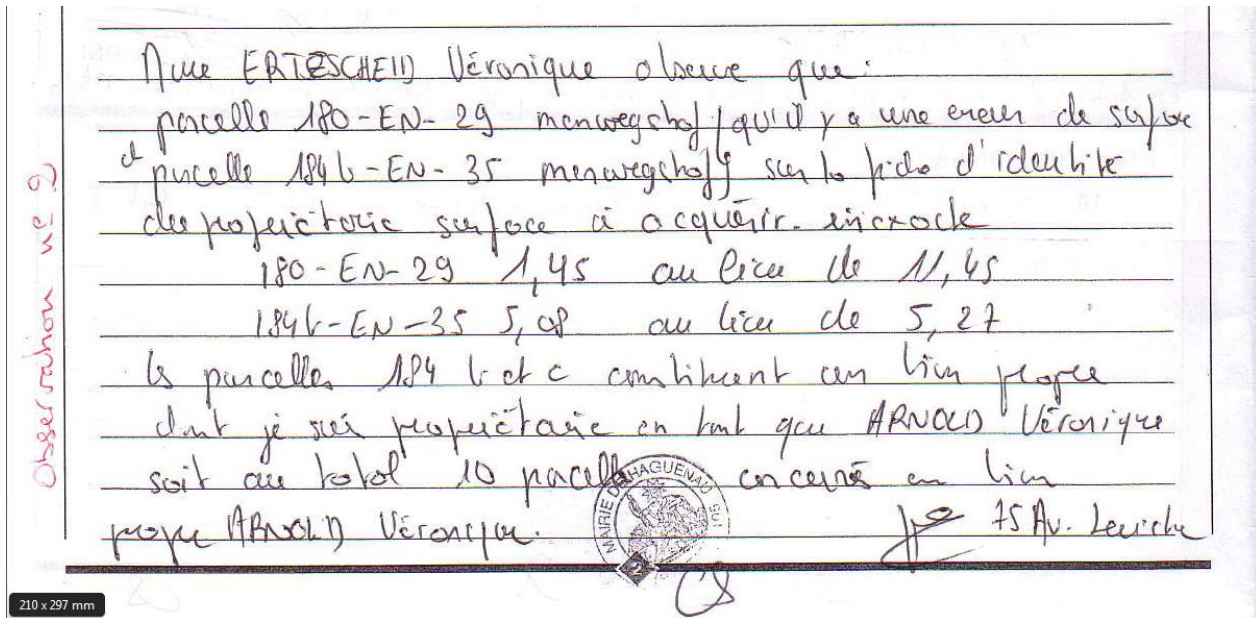 Mme ERTZSCHEID Véronique observe que:
parcelle 180-EN-29 menwegshof, qu'il y a une erreur de surface
et parcelle 184 b-EN-35 menwegshoff sur la fiche d'identité
des propriétaire surface à acquérir. inexacte
180-EN-29 1,45 au lieu de 11,45
184b-EN-35 5,08 au lieu de 5,27
les parcelles 184 b et c constituent un bien propre
dont je suis propriétaire en tant que ARNOLD Véronique
soit au total 10 parcelles concernés en bien
propre ARNOLD Véronique. 75 Av. Leriche
Observation n° 2
MAIRIE DE HAGUENAU
2
210 x 297 mm